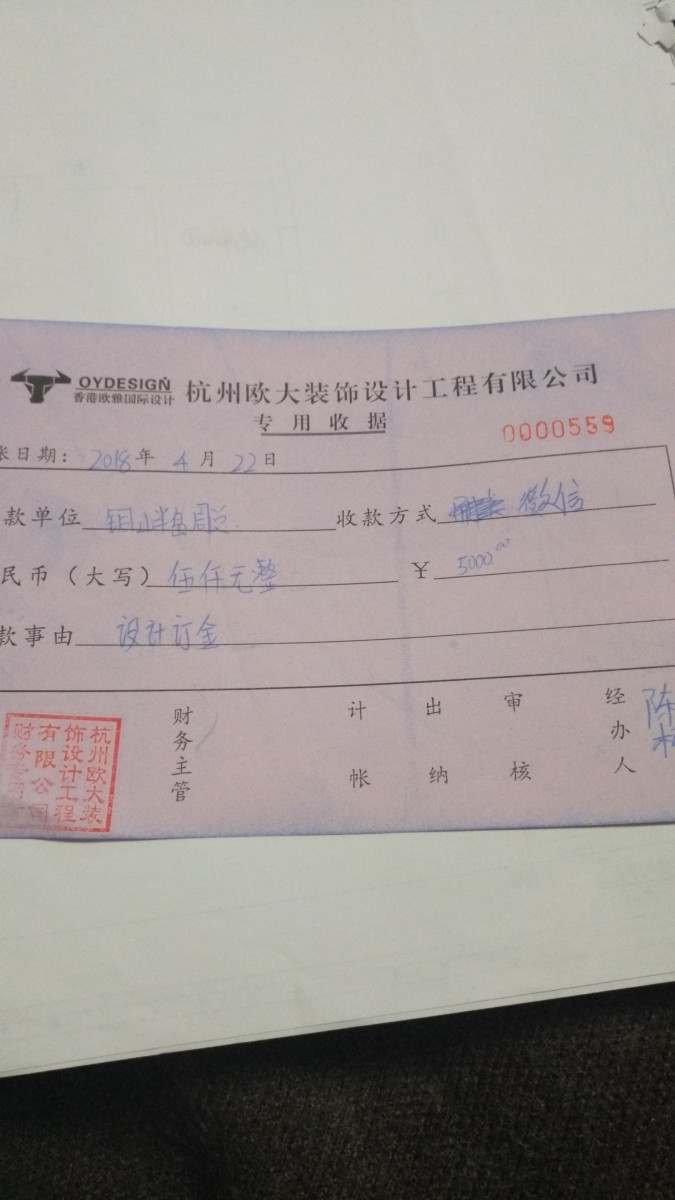 OYDESIGN 杭州欧大装饰设计工程有限公司
香港欧雅国际设计
专用收据
0000559
日期：2018年4月22日
款单位 收款方式 微信
民币（大写）伍仟元整 ¥ 5000.00
款事由 设计订金
财务主管 计帐 出纳 审核 经办人 陈
杭州欧大装
饰设计工程
有限公司
财务专用